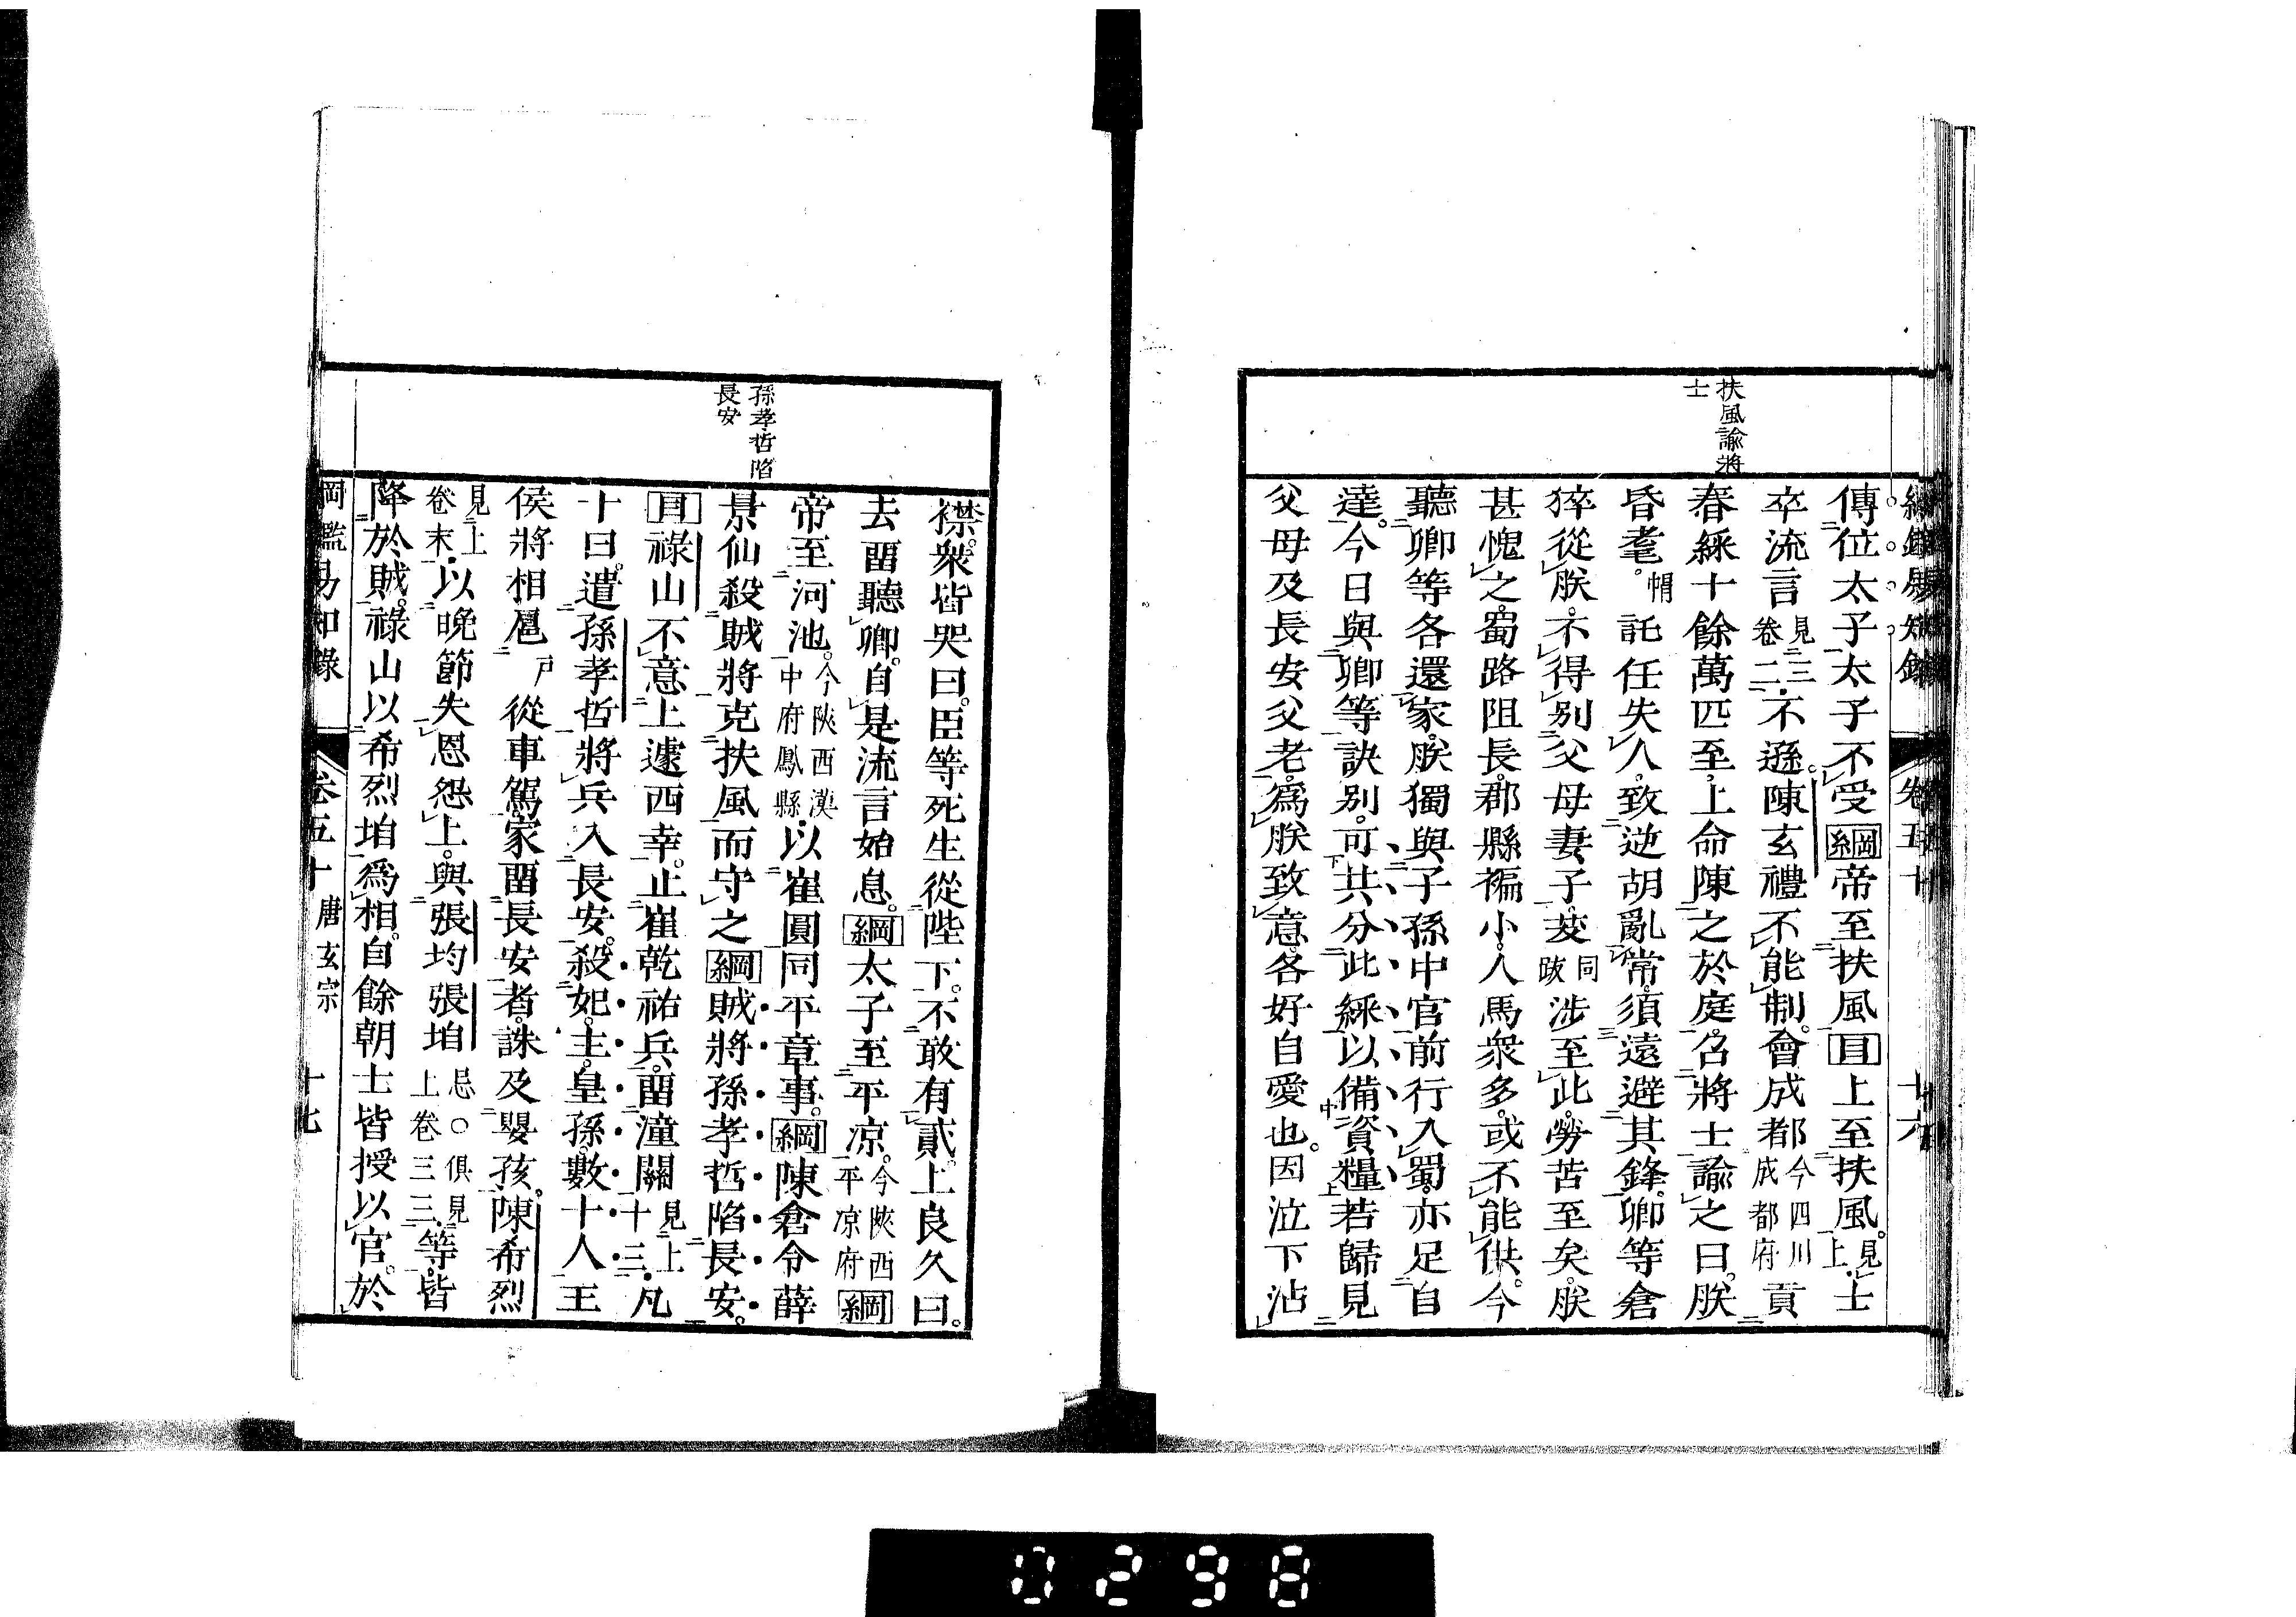 綱鑑易知錄 卷五十 十六
扶風諭將
士
傳位太子太子不受綱帝至扶風目上至扶風見上士
卒流言見三卷二不遜陳玄禮不能制會成都今四川成都府貢
春綵十餘萬匹至上命陳之於庭召將士諭之曰朕
昏耄帽託任失人致逆胡亂常須遠避其鋒卿等倉
猝從朕不得別父母妻子茇同跋涉至此勞苦至矣朕
甚愧之蜀路阻長郡縣褊小人馬衆多或不能供今
聽卿等各還家朕獨與子孫中官前行入蜀亦足自
達今日與卿等訣別可共分此綵以備資糧若歸見
父母及長安父老爲朕致意各好自愛也因泣下沾
孫孝哲陷
長安
襟衆皆哭曰臣等死生從陛下不敢有貳上良久曰
去畱聽卿自是流言始息綱太子至平凉今陜西平凉府綱
帝至河池今陜西漢中府鳳縣以崔圓同平章事綱陳倉令薛
景仙殺賊將克扶風而守之綱賊將孫孝哲陷長安
目祿山不意上遽西幸止崔乾祐兵畱潼關見上十三凡
十日遣孫孝哲將兵入長安殺妃主皇孫數十人王
侯將相扈戶從車駕家畱長安者誅及嬰孩陳希烈
見上卷末以晚節失恩怨上與張均張垍忌○俱見上卷三三等皆
降於賊祿山以希烈垍爲相自餘朝士皆授以官於
綱鑑易知錄 卷五十 唐玄宗 十七
0298